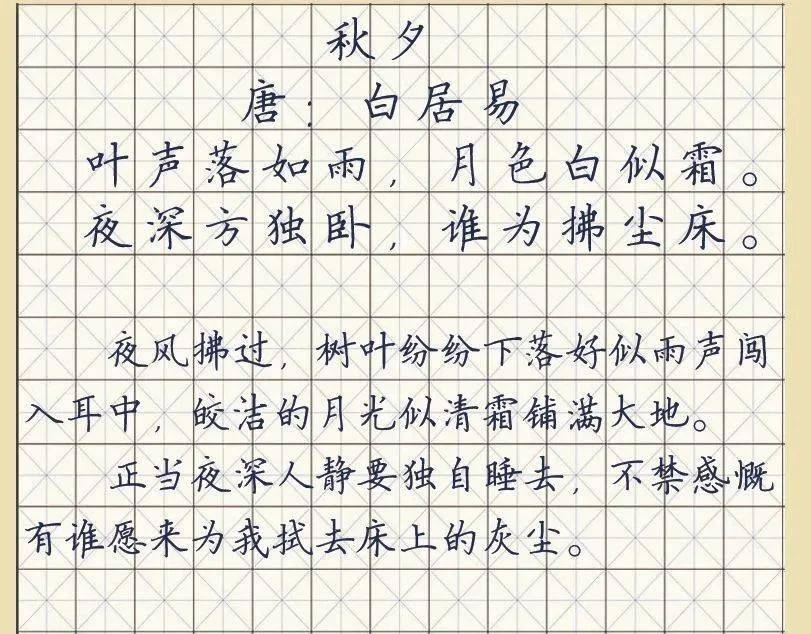 秋夕
唐：白居易
叶声落如雨，月色白似霜。
夜深方独卧，谁为拂尘床。
夜风拂过，树叶纷纷下落好似雨声闯
入耳中，皎洁的月光似清霜铺满大地。
正当夜深人静要独自睡去，不禁感慨
有谁愿来为我拭去床上的灰尘。